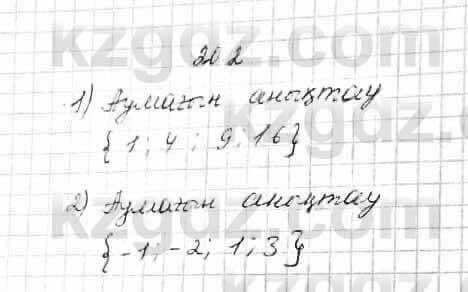 202
1) Аумағын анықтау
{1; 4; 9; 16}
2) Аумағын анықтау
{-1; -2; 1; 3}
kzgdz.com